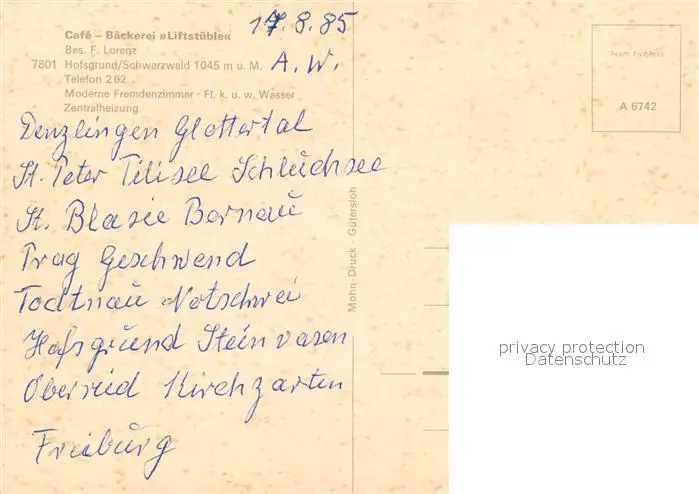 17.8.85
Café – Bäckerei »Liftstüble«
Bes. F. Lorenz
7801 Hofsgrund/Schwarzwald 1045 m ü. M.
A. W.
Telefon 2 62
Moderne Fremdenzimmer · Fl. k. u. w. Wasser
Zentralheizung
Denzlingen Glottertal
St. Peter Titisee Schluchsee
St. Blasie Bernau
Prag Geschwend
Todtnau Notschrei
Hofsgrund Steinwasen
Oberried Kirchzarten
Freiburg
Mohn-Druck · Gütersloh
A 6742
privacy protection
Datenschutz